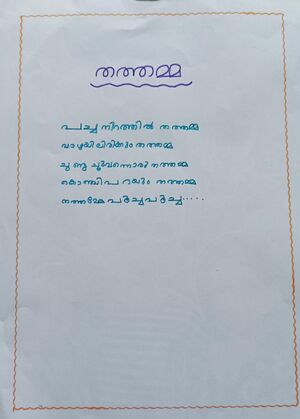 തത്തമ്മ
പച്ച നിറത്തിൽ തത്തമ്മ
വാഴയിലിരിക്കും തത്തമ്മ
ചുണ്ടു ചുവന്നൊരു തത്തമ്മ
കൊഞ്ചിപറയും തത്തമ്മ
തത്തമ്മേ പൂച്ചപൂച്ച.....